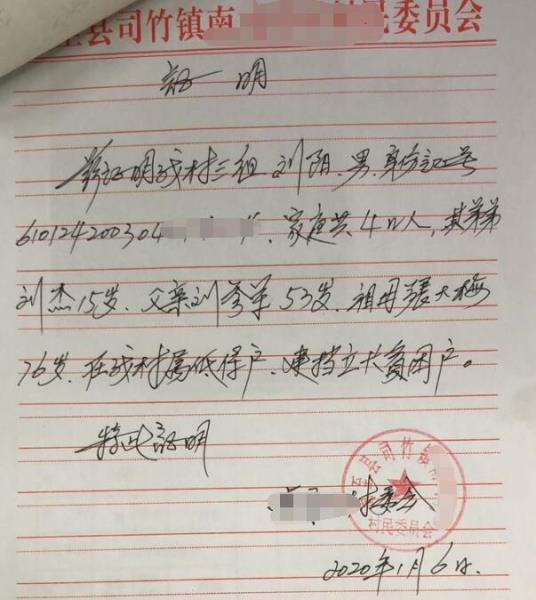 县司竹镇南
村民委员会
证 明
兹证明我村三组刘阳、男、身份证号
610124200304 、家庭共4口人,其弟弟
刘杰15岁、父亲刘 53岁、祖母張大梅
76岁、在我村属低保户、建档立卡貧困户。
特此証明
村委会
司竹镇
村民委员会
2020年1月6日